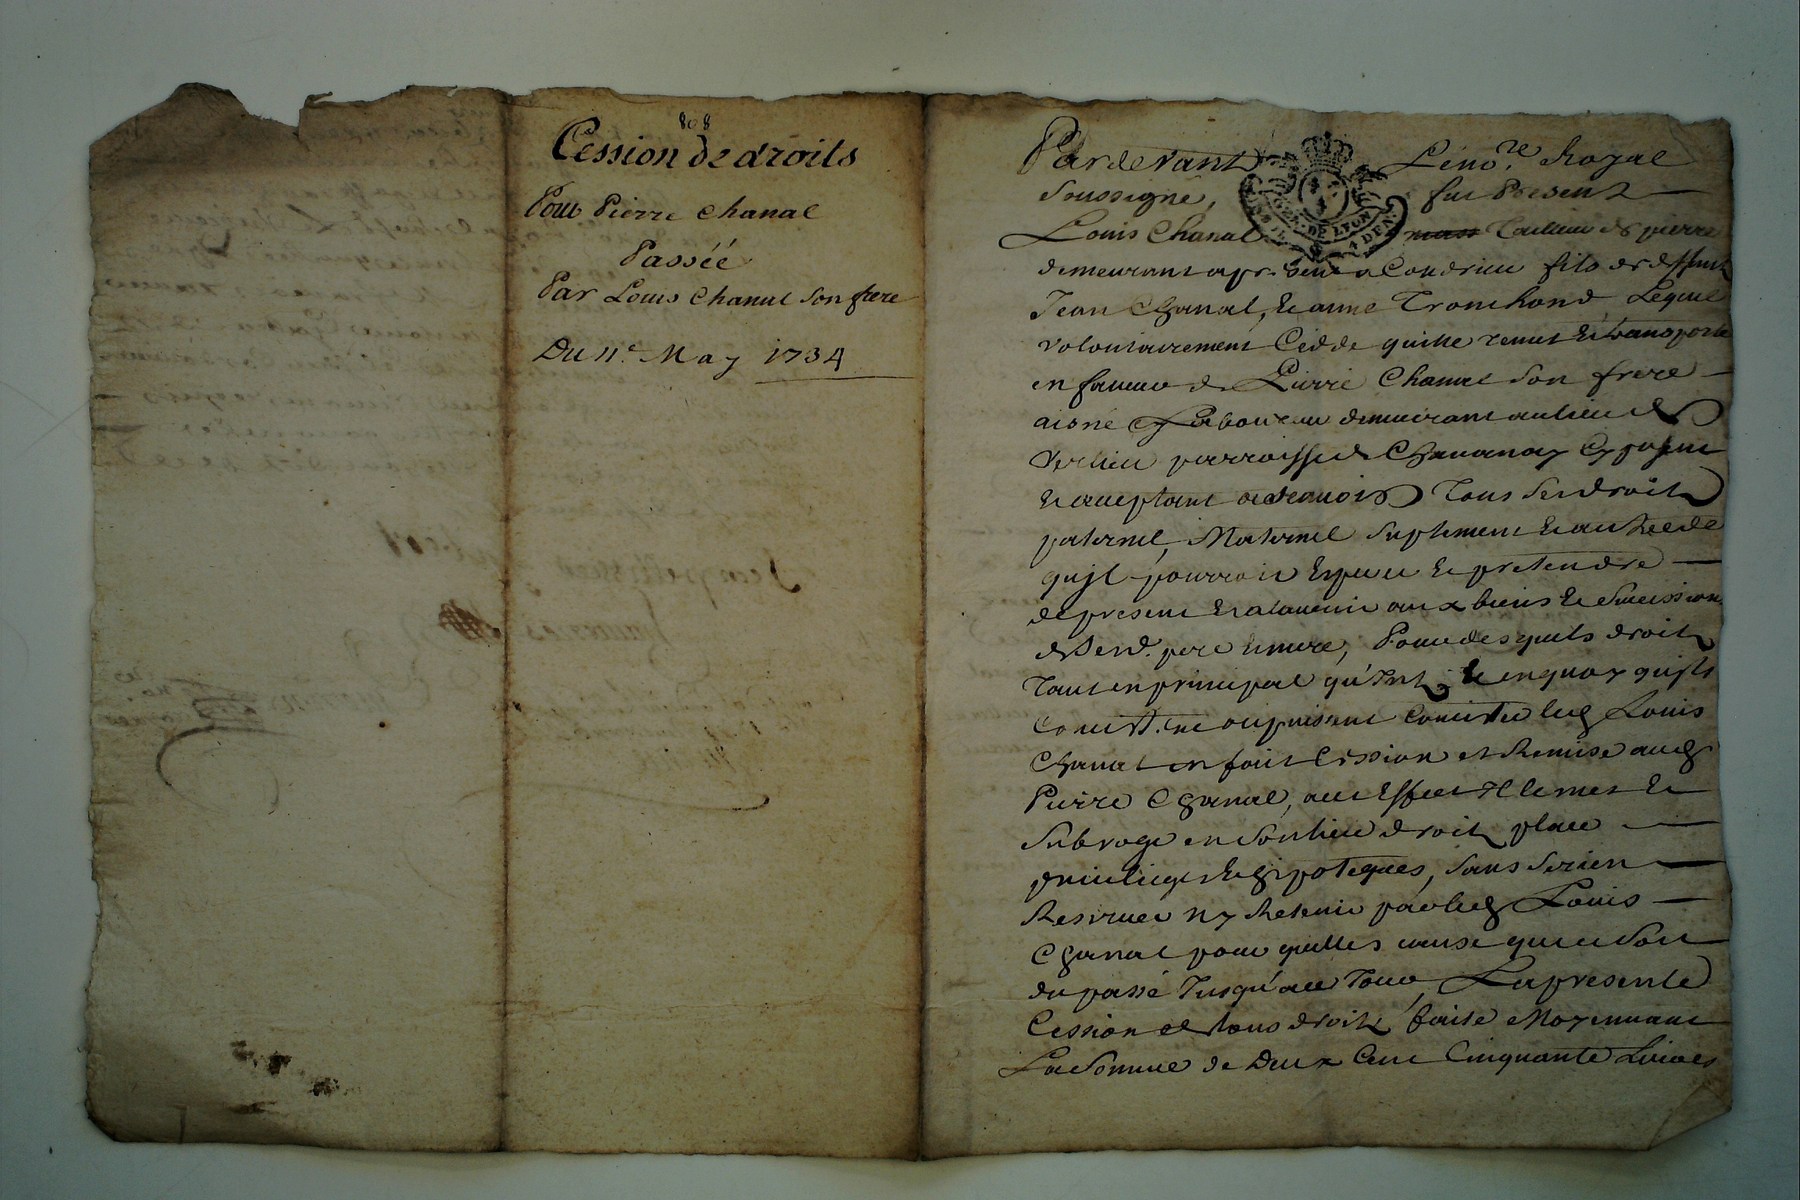 808
Cession de droits
Pour Pierre Chanal
Passéé
Par Louis Chanal Son frere
Du 11e May 1734
Pardevant Le no.re Royal
Soussigné, fut Present
GEN. DE LYON 4 DEN.
Louis Chanal Tailleur de pierre
demeurant a Condrieu fils de deffunt
Jean Chanal, & anne Tronchond Lequel
volontairement Cedde quitte remet & transporte
en faveur de Pierre Chanal Son frere
aisné Laboureur demeurant au lieu de
Verlieu parroisse de Chavanay Cy present
& acceptant Tous Ses droits
paternel, Maternel Suplement & autre
qu'il pourroit Esperer & pretendre
de present & a lavenir aux biens & Succession
de Sesd. pere & mere, Pour desquels droits
Tant en principal qu'Int. & en quoy qu'ils
Consistent ou puissent Consister led Louis
Chanal en fait Cession et Remise aud
Pierre Chanal, a cet Effect Il le met &
Subroge en Son lieu droit place
privilege & hipoteques, Sans Se rien
Reserver ny Retenir par led Louis
Chanal pour quelles cause que ce Soit
du passé Jusqu'a ce Jour, La presente
Cession de tous droits faite Moyennant
La Somme de Deux Cent Cinquante Livres